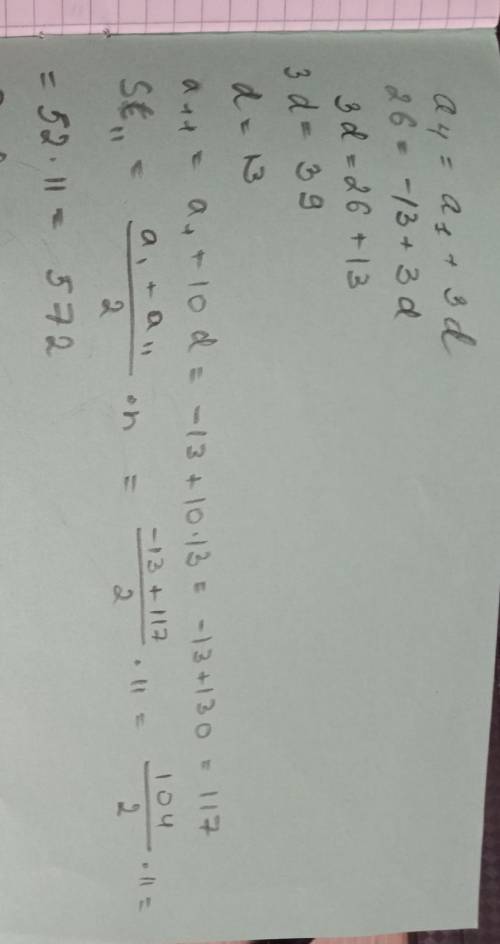 a₄ = a₁ + 3d
26 = -13 + 3d
3d = 26 + 13
3d = 39
d = 13
a₁₁ = a₁ + 10d = -13 + 10·13 = -13 + 130 = 117
S₁₁ = (a₁ + a₁₁)/2 · n = (-13 + 117)/2 · 11 = 104/2 · 11 =
= 52 · 11 = 572